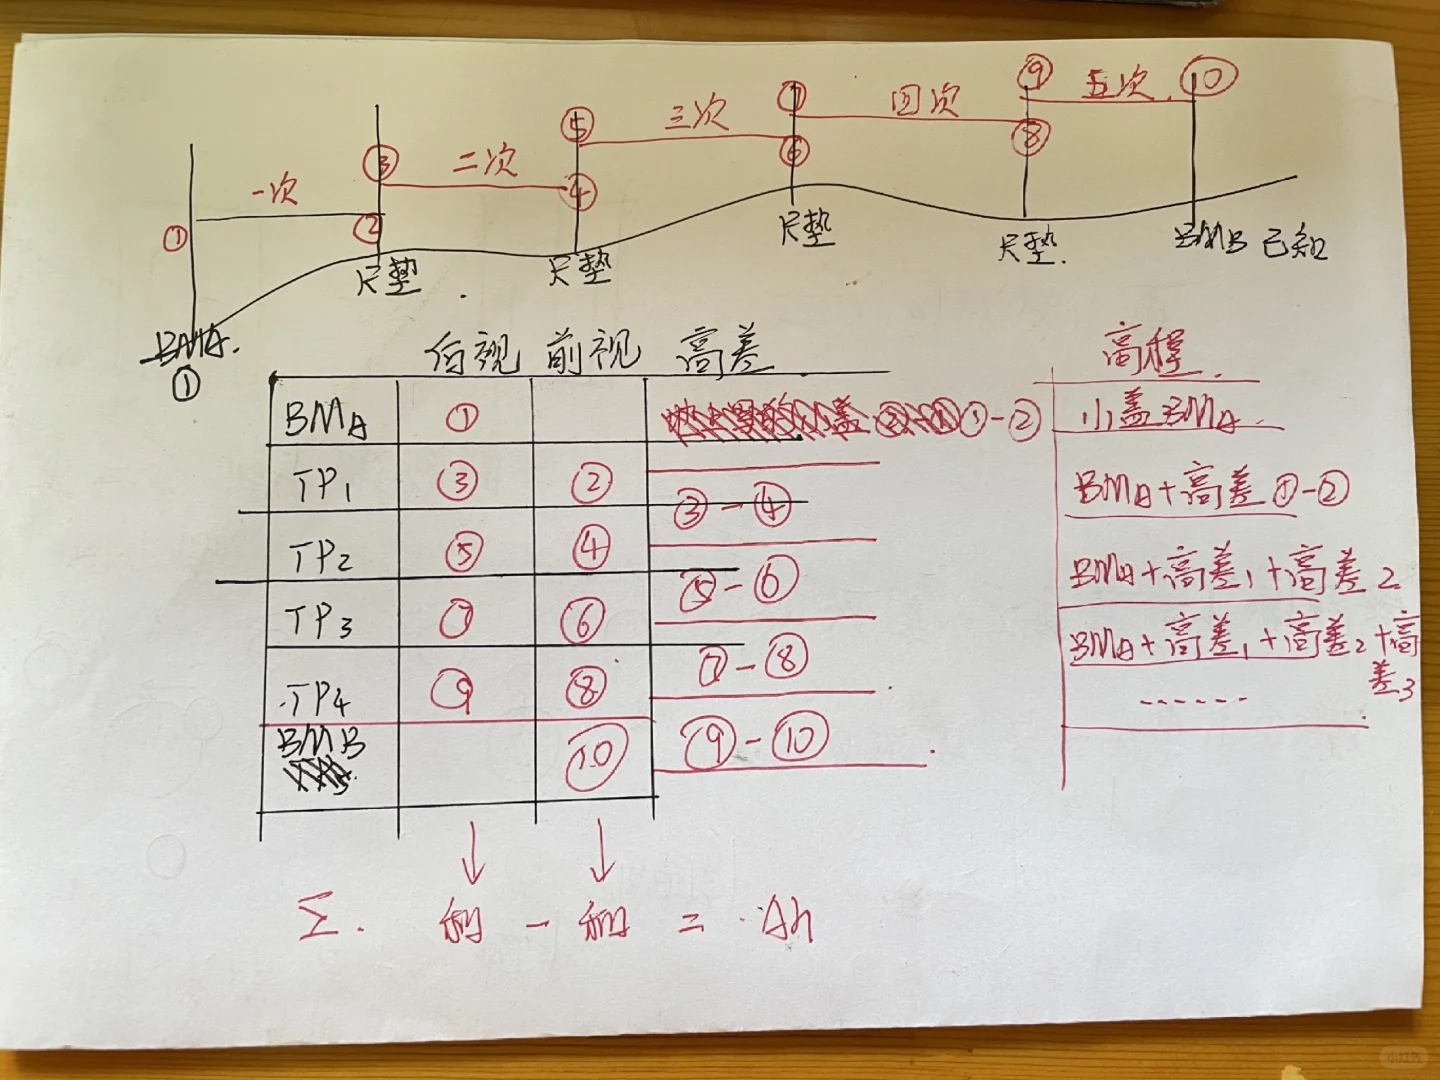 ⑨ 五次 ⑩
⑤ 三次 ⑦ 四次
③ 二次 ⑥ ⑧
一次 ④
① ②
尺垫 尺垫 尺垫 尺垫 BMB 已知
BMA.
①
后视 前视 高差 高程
BMA ① ①-② 小盖BMA
TP1 ③ ② ③-④ BMA+高差①-②
TP2 ⑤ ④ ⑤-⑥ BMA+高差1+高差2
TP3 ⑦ ⑥ ⑦-⑧ BMA+高差1+高差2+高差3
TP4 ⑨ ⑧ ⑨-⑩ ------
BMB ⑩
Σ. 和 - 和 = Δh
小红书